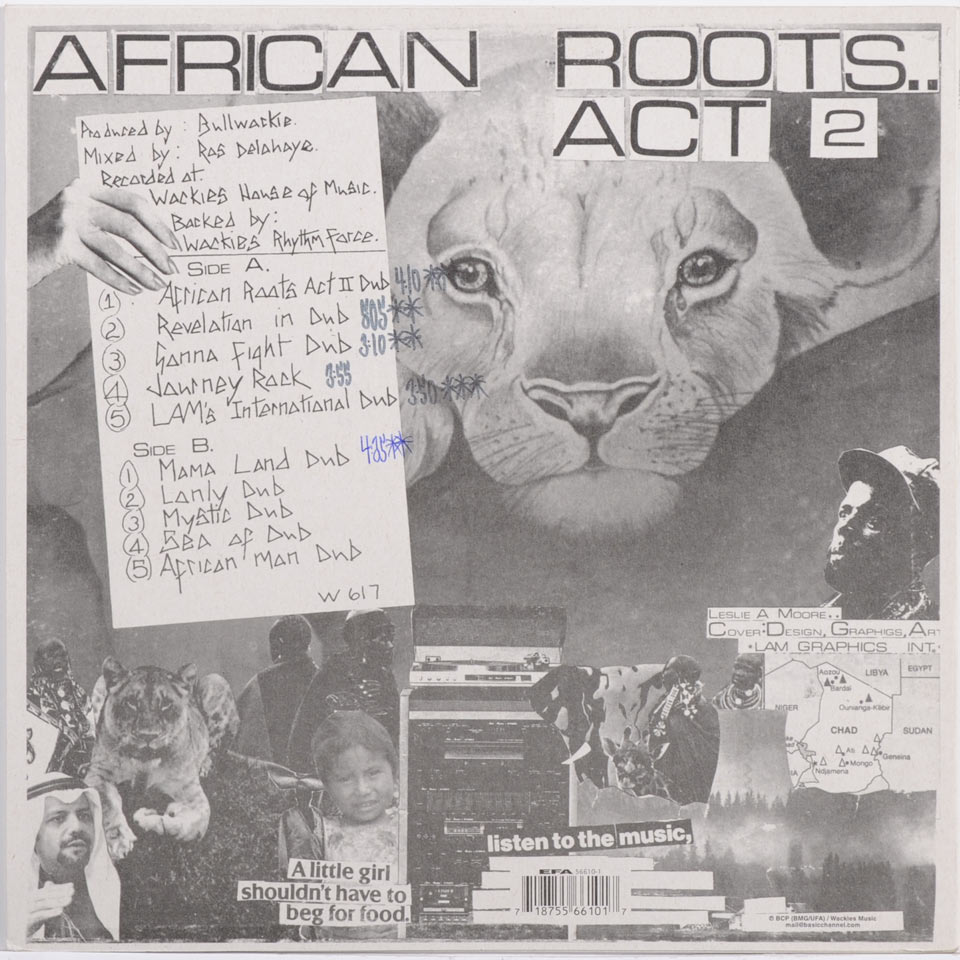 AFRICAN ROOTS..
ACT 2
Produced by : Bullwackie.
Mixed by : Ras Delahaye.
Recorded at.
Wackies House of Music.
Backed by :
Wackies Rhythm Force.
SIDE A.
1 African Roots Act II Dub 4:10 **
2 Revelation in Dub 805 **
3 Gonna Fight Dub 3:10 **
4 Journey Rock 3:55
5 LAM's International Dub 3:50 ***
SIDE B.
1 Mama Land Dub 4:25 **
2 Lanly Dub
3 Mystic Dub
4 Sea of Dub
5 African Man Dub
W 617
LESLIE A MOORE..
COVER•DESIGN, GRAPHIGS, ART
•LAM GRAPHICS INT•
Aozou
LIBYA
EGYPT
Bardai
NIGER
Ounianga-Kébir
CHAD
SUDAN
Ati
Geneina
Mongo
Ndjamena
listen to the music,
A little girl
shouldn't have to
beg for food.
EFA 56610-1
7 18755 66101 7
© BCP (BMG/UFA) / Wackies Music
mail@basicchannel.com